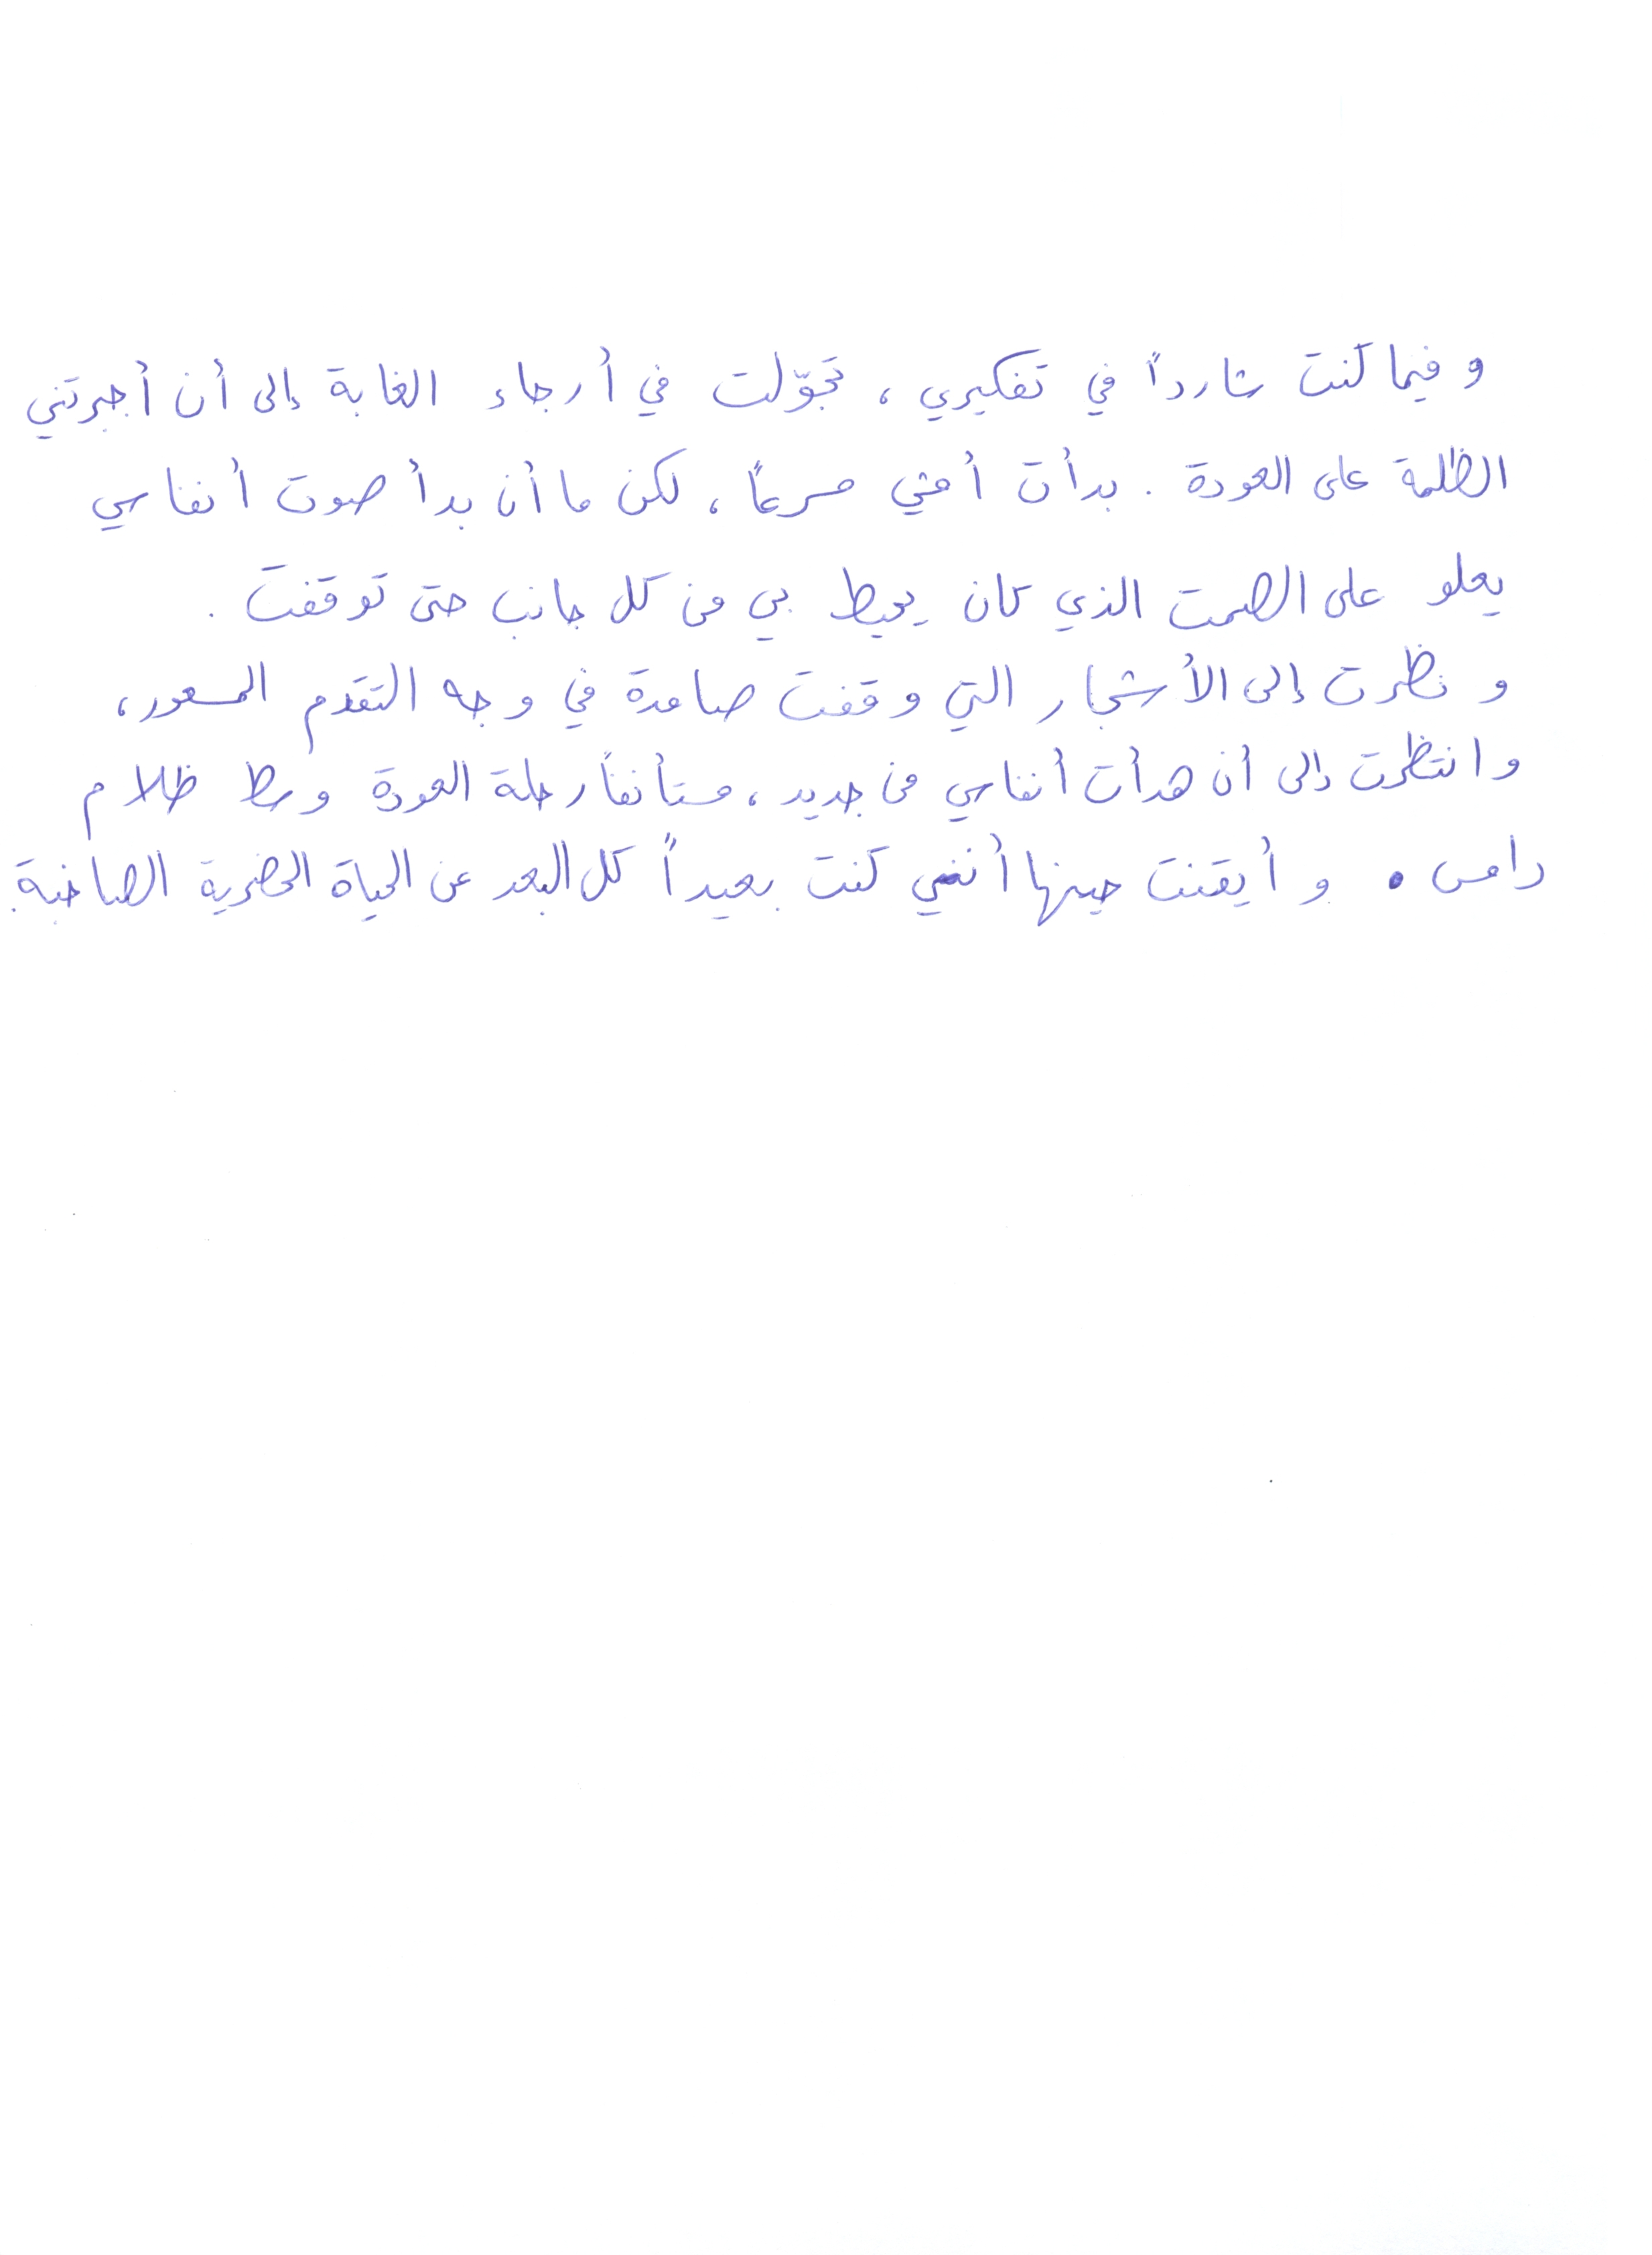 وفيما كنت شارداً في تفكيري، تجوّلت في أرجاء الغابة إلى أن أجبرتني
الظلمة على العودة. بدأت أمشي مسرعاً، لكن ما أن بدأ صوت أنفاسي
يعلو على الصمت الذي كان يحيط بي من كل جانب حتى توقفت.
ونظرت إلى الأشجار التي وقفت صامدة في وجه التقدم المسعور،
وانتظرت إلى أن هدأت أنفاسي من جديد، مستأنفاً رحلة العودة وسط ظلام
دامس. وأيقنت حينها أنني كنت بعيداً كل البعد عن الحياة الحضرية الصاخبة.